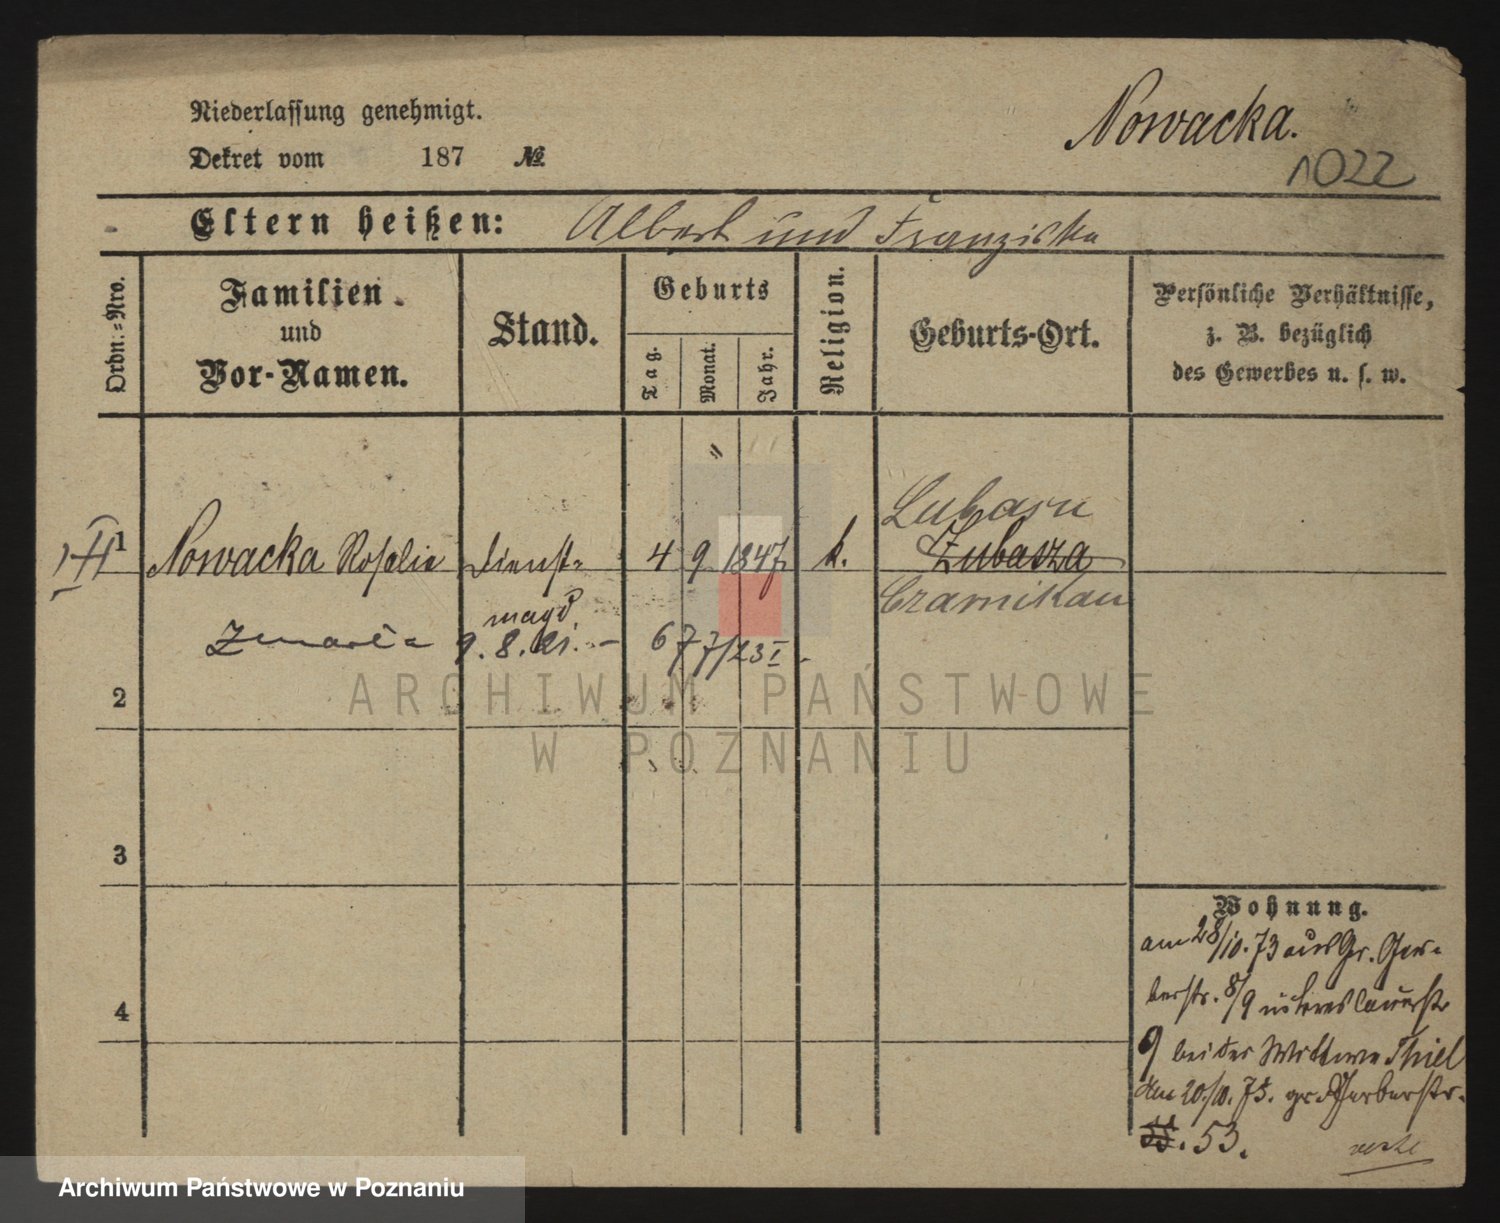 Niederlassung genehmigt.
Dekret vom 187 №
Nowacka.
1022
Eltern heißen: Albert und Franziska
Ordn.=Nro.
Familien
und
Vor-Namen.
Stand.
Geburts
Tag.
Monat.
Jahr.
Religion.
Geburts-Ort.
Persönliche Verhältnisse,
z. B. bezüglich
des Gewerbes u. s. w.
Lubasz
1 Nowacka Rosalie Dienst= 4 9 1847 k. Lubasza
magd. Czarnikau
Zmarła 9.8.21. 67 7/23 I
2
3
4
Wohnung.
am 28/10.73 aus Gr. Ger=
berstr. 8/9 n.
9 bei der Wittwe Thiel
Am 20/10.75. gr. Gerberstr.
53.
verte
ARCHIWUM PAŃSTWOWE
W POZNANIU
Archiwum Państwowe w Poznaniu